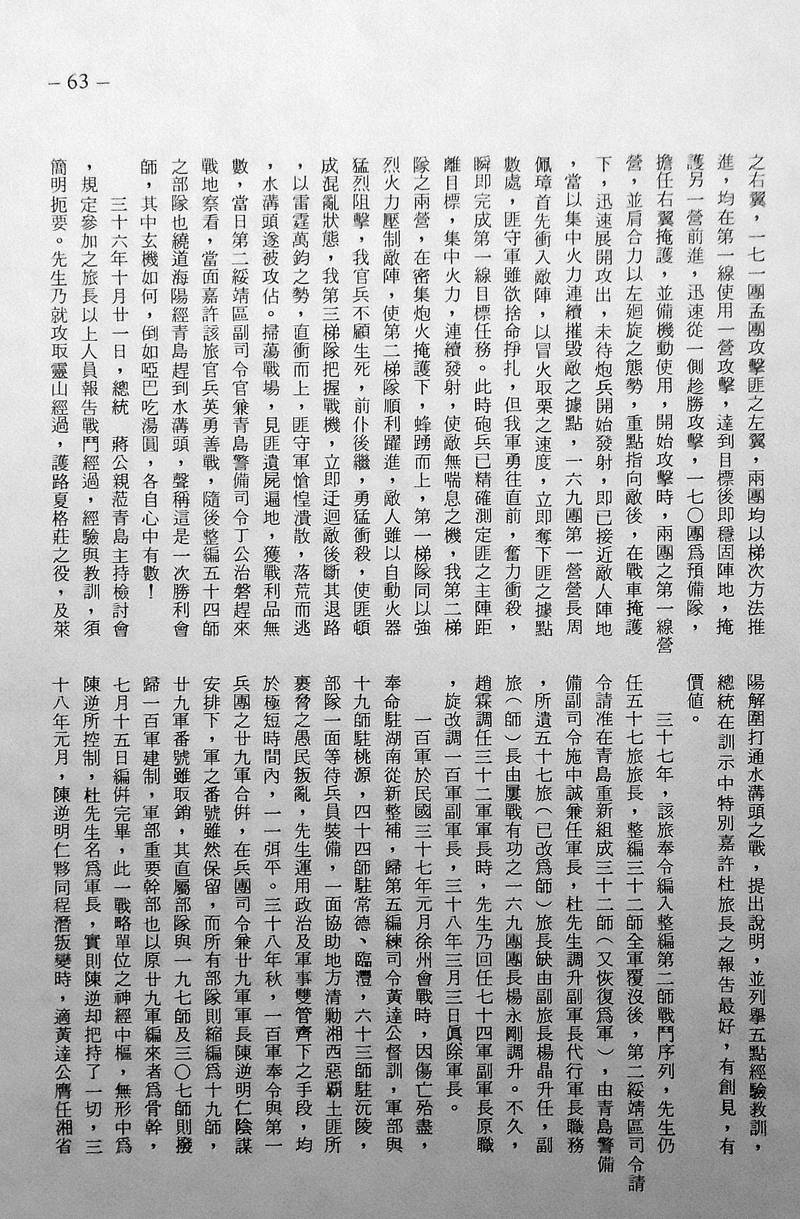 – 63 –
之右翼，一七一團孟團攻擊匪之左翼，兩團均以梯次方法推
進，均在第一線使用一營攻擊，達到目標後即穩固陣地，掩
護另一營前進，迅速從一側趁勝攻擊，一七〇團爲預備隊，
擔任右翼掩護，並備機動使用，開始攻擊時，兩團之第一線營
營，並肩合力以左廻旋之態勢，重點指向敵後，在戰車掩護
下，迅速展開攻出，未待炮兵開始發射，即已接近敵人陣地
，當以集中火力連續摧毀敵之據點，一六九團第一營營長周
佩璋首先衝入敵陣，以冒火取栗之速度，立即奪下匪之據點
數處，匪守軍雖欲捨命掙扎，但我軍勇往直前，奮力衝殺，
瞬即完成第一線目標任務。此時砲兵已精確測定匪之主陣距
離目標，集中火力，連續發射，使敵無喘息之機，我第二梯
隊之兩營，在密集炮火掩護下，蜂踴而上，第一梯隊同以強
烈火力壓制敵陣，使第二梯隊順利躍進，敵人雖以自動火器
猛烈阻擊，我官兵不顧生死，前仆後繼，勇猛衝殺，使匪頓
成混亂狀態，我第三梯隊把握戰機，立即迂迴敵後斷其退路
，以雷霆萬鈞之勢，直衝而上，匪守軍愴惶潰散，落荒而逃
，水溝頭遂被攻佔。掃蕩戰場，見匪遺屍遍地，獲戰利品無
數，當日第二綏靖區副司令官兼青島警備司令丁公治磐趕來
戰地察看，當面嘉許該旅官兵英勇善戰，隨後整編五十四師
之部隊也繞道海陽經青島趕到水溝頭，聲稱這是一次勝利會
師，其中玄機如何，倒如啞巴吃湯圓，各自心中有數！
三十六年十月廿一日，總統　蔣公親蒞青島主持檢討會
，規定參加之旅長以上人員報告戰鬥經過，經驗與教訓，須
簡明扼要。先生乃就攻取靈山經過，護路夏格莊之役，及萊
陽解圍打通水溝頭之戰，提出說明，並列舉五點經驗教訓，
總統在訓示中特別嘉許杜旅長之報告最好，有創見，有
價值。
三十七年，該旅奉令編入整編第二師戰鬥序列，先生仍
任五十七旅旅長，整編三十二師全軍覆沒後，第二綏靖區司令請
令請准在青島重新組成三十二師（又恢復爲軍），由青島警備
備副司令施中誠兼任軍長，杜先生調升副軍長代行軍長職務
，所遺五十七旅（已改爲師）旅長缺由副旅長楊晶升任，副
旅（師）長由屢戰有功之一六九團團長楊永剛調升。不久，
趙霖調任三十二軍軍長時，先生乃回任七十四軍副軍長原職
，旋改調一百軍副軍長，三十八年三月三日眞除軍長。
一百軍於民國三十七年元月徐州會戰時，因傷亡殆盡，
奉命駐湖南從新整補，歸第五編練司令黃達公督訓，軍部與
十九師駐桃源，四十四師駐常德、臨澧，六十三師駐沅陵，
部隊一面等待兵員裝備，一面協助地方清勦湘西惡覇土匪所
裹脅之愚民叛亂，先生運用政治及軍事雙管齊下之手段，均
於極短時間內，一一弭平。三十八年秋，一百軍奉令與第一
兵團之廿九軍合倂，在兵團司令兼廿九軍軍長陳逆明仁陰謀
安排下，軍之番號雖然保留，而所有部隊則縮編爲十九師，
廿九軍番號雖取銷，其直屬部隊與一九七師及三〇七師則撥
歸一百軍建制，軍部重要幹部也以原廿九軍編來者爲骨幹，
七月十五日編倂完畢，此一戰略單位之神經中樞，無形中爲
陳逆所控制，杜先生名爲軍長，實則陳逆却把持了一切，三
十八年元月，陳逆明仁夥同程潛叛變時，適黃達公膺任湘省